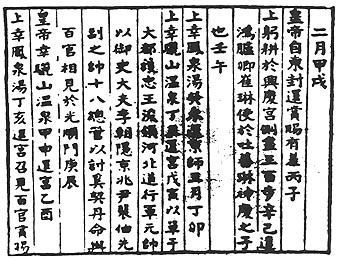 二月甲戌
皇帝自東封還賞賜有差丙子
上躬耕於興慶宮側盡三百步辛己遣
鴻臚卿崔琳使於吐蕃琳神慶之子
也壬午
上幸鳳泉湯癸未還京師三月丁卯
上幸驪山溫泉丁亥還宮戊寅以單于
大都護忠王浚領河北道行軍元帥
以御史大夫李朝隱京兆尹裴伯先
副之帥十八總管以討奚契丹命與
百官相見於光順門庚辰
皇帝幸驪山溫泉甲申還宮乙酉
上幸鳳泉湯丁亥還宮召見百官賞賜